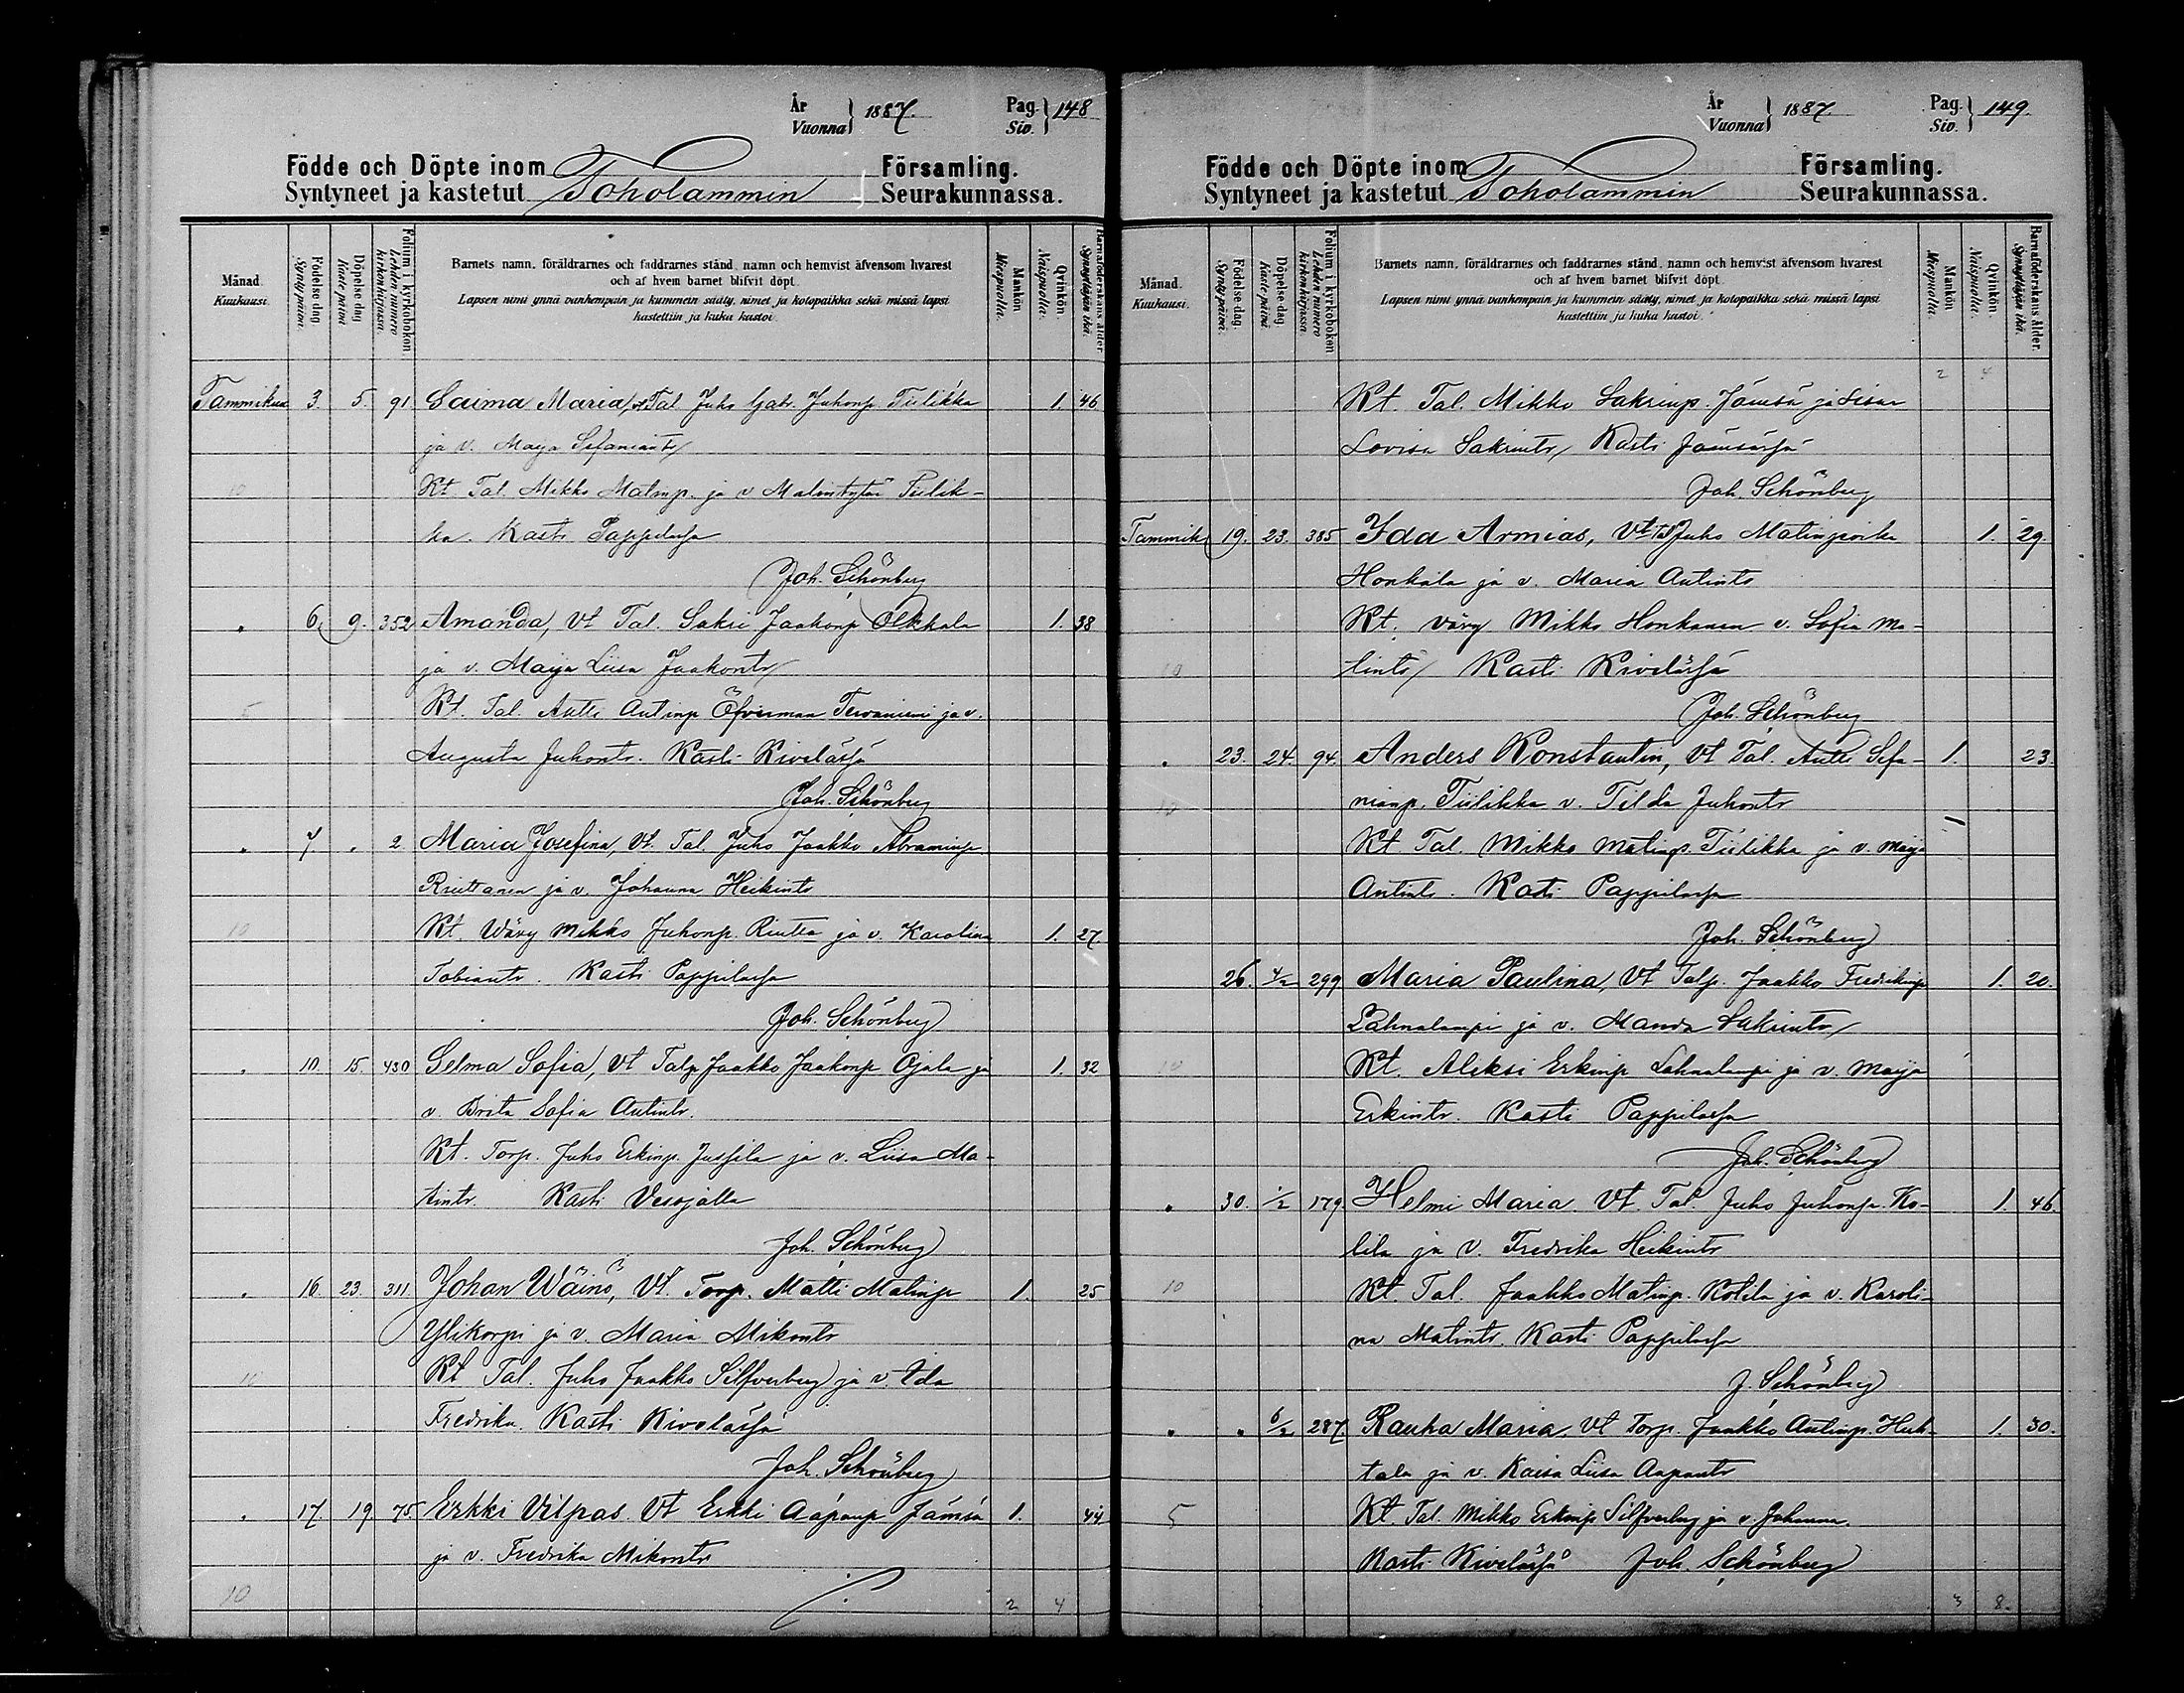 År
Vuonna } 1887. Pag. Siv. } 148
Födde och Döpte inom Toholammin Församling.
Syntyneet ja kastetut Seurakunnassa.
Månad. Kuukausi.
Födelse dag. Synty päivä.
Döpelse dag. Kaste päivä.
Folium i kyrkobokon. Lehden numero kirkonkirjassa.
Barnets namn, föräldrarnes och faddrarnes stånd, namn och hemvist äfvensom hvarest
och af hvem barnet blifvit döpt.
Lapsen nimi ynnä vanhempain ja kummein sääty, nimet ja kotopaikka sekä missä lapsi
kastettiin ja kuka kastoi.
Mankön. Miespuolia.
Qvinkön. Naispuolia.
Barnaföderskans ålder. Synnyttäjän ikä.
Tammikuu 3. 5. 91 Saima Maria, Vt Tal Juho Gabr. Juhonp Tiilikka 1. 46
ja v. Maija Sefaniantr
10 Kt Tal. Mikko Matinp. ja v Tiilik-
ka. Kasti Pappilassa
Joh. Schönberg
" 6. 9. 352 Amanda, Vt Tal. Sakri Jaakonp Olkkala 1. 38
ja v. Maija Liisa Jaakontr
5 Kt. Tal. Antti Antinp Öfverman Tervaniemi ja v.
Augusta Juhontr. Kasti Kivelässä
Joh. Schönberg
" 7. " 2 Maria Josefina, Vt. Tal. Juho Jaakko Abraminp
Riuttanen ja v. Johanna Heikintr
10 Kt. Wävy Mikko Juhonp. Riutta ja v. Karolina 1. 27
Tobiantr. Kasti Pappilassa
Joh. Schönberg
" 10. 15. 430 Selma Sofia, Vt Talp Jaakko Jaakonp Ojala ja 1. 32
v. Brita Sofia Antintr.
Kt. Torp. Juho Erkinp. Jussila ja v. Liisa Ma-
tintr. Kasti Vesojalla
Joh. Schönberg
" 16. 23. 311. Johan Wäinö, Vt. Torp. Matti Matinp 1. 25
Ylikorpi ja v. Maria Mikontr
10 Kt Tal. Juho Jaakko Silfverberg ja v. Ida
Fredrika. Kasti Kivelässä
Joh. Schönberg
" 17. 19. 75 Erkki Vilpas. Vt Erkki Aapanp Jämsä 1. 44.
ja v. Fredrika Mikontr
10 2 4
År
Vuonna } 1887. Pag. Siv. } 149.
Födde och Döpte inom Toholammin Församling.
Syntyneet ja kastetut Seurakunnassa.
Månad. Kuukausi.
Födelse dag. Synty päivä.
Döpelse dag. Kaste päivä.
Folium i kyrkobokon Lehden numero kirkonkirjassa.
Barnets namn, föräldrarnes och faddrarnes stånd, namn och hemvist äfvensom hvarest
och af hvem barnet blifvit döpt.
Lapsen nimi ynnä vanhempain ja kummein sääty, nimet ja kotopaikka sekä missä lapsi
kastettiin ja kuka kastoi.
Mankön Miespuolia.
Qvinkön. Naispuolia.
Barnaföderskans ålder. Synnyttäjän ikä.
2 4
Kt. Tal. Mikko Sakrinp. Jämsä ja sisar
Lovisa Sakrintr, Kasti Jämsässä
Joh. Schönberg
Tammik 19. 23. 385 Ida Armias, Vt Juho Matinpoika 1. 29.
Honkala ja v. Maria Antintr
Kt. Vävy Mikko Honkanen v. Sofia Ma-
10 tintr Kasti Kivelässä
Joh. Schönberg
" 23. 24 94. Anders Konstantin, Vt Tal. Antti Sefa- 1. 23.
10 nianp. Tiilikka v. Tilda Juhontr
Kt. Tal. Mikko Matinp. Tiilikka ja v. Maija
Antintr. Kasti Pappilassa
Joh. Schönberg
26. 4/2 299 Maria Paulina, Vt Talp. Jaakko Fredrikinp 1. 20.
Lahnalampi ja v. Manda Sakrintr
10 Kt. Aleksi Erkinp Lahnalampi ja v. Maija
Erkintr. Kasti Pappilassa
Joh. Schönberg
" 30. 1/2 179. Helmi Maria. Vt. Tal. Juho Juhonp. Ko- 1. 46.
tila ja v. Fredrika Heikintr
10 Kt. Tal. Jaakko Matinp. Kotila ja v. Karoli-
na Matintr. Kasti Pappilassa
J. Schönberg
" " 6/2 287. Rauha Maria, Vt Torp. Jaakko Antinp. Huh- 1. 30.
tala ja v. Kaisa Liisa Aapantr
5 Kt. Tal. Mikko Erkinp Silfverberg ja v. Johanna.
Kasti Kivelässä Joh. Schönberg
3 8.